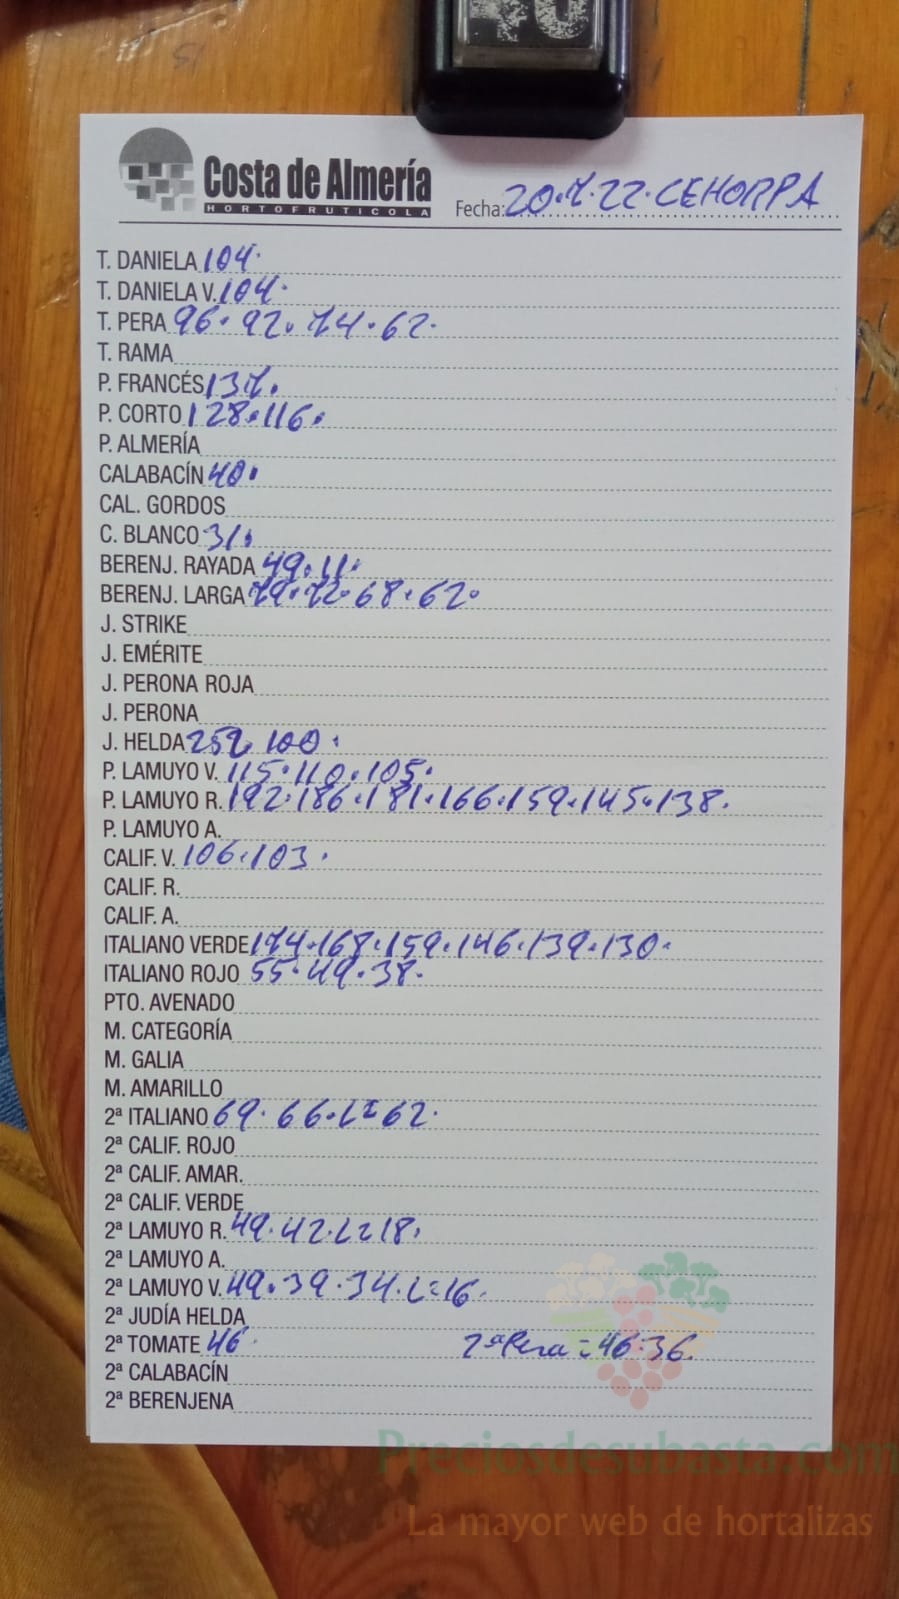 Costa de Almería
HORTOFRUTICOLA
Fecha: 20.7.22. CEHORPA
T. DANIELA 104.
T. DANIELA V. 104.
T. PERA 96. 92. 74. 62.
T. RAMA
P. FRANCÉS 137.
P. CORTO 128. 116.
P. ALMERÍA
CALABACÍN 40.
CAL. GORDOS
C. BLANCO 31.
BERENJ. RAYADA 49. 11.
BERENJ. LARGA 79. 72. 68. 62.
J. STRIKE
J. EMÉRITE
J. PERONA ROJA
J. PERONA
J. HELDA 252. 100.
P. LAMUYO V. 115. 110. 105.
P. LAMUYO R. 192. 186. 181. 166. 159. 145. 138.
P. LAMUYO A.
CALIF. V. 106. 103.
CALIF. R.
CALIF. A.
ITALIANO VERDE 174. 168. 159. 146. 139. 130.
ITALIANO ROJO 55. 49. 38.
PTO. AVENADO
M. CATEGORÍA
M. GALIA
M. AMARILLO
2ª ITALIANO 69. 66. L= 62.
2ª CALIF. ROJO
2ª CALIF. AMAR.
2ª CALIF. VERDE
2ª LAMUYO R. 49. 42. L= 18.
2ª LAMUYO A.
2ª LAMUYO V. 49. 39. 34. L= 16.
2ª JUDÍA HELDA
2ª TOMATE 46. 2ª Pera = 46. 36.
2ª CALABACÍN
2ª BERENJENA
Preciosdesubasta.com
La mayor web de hortalizas